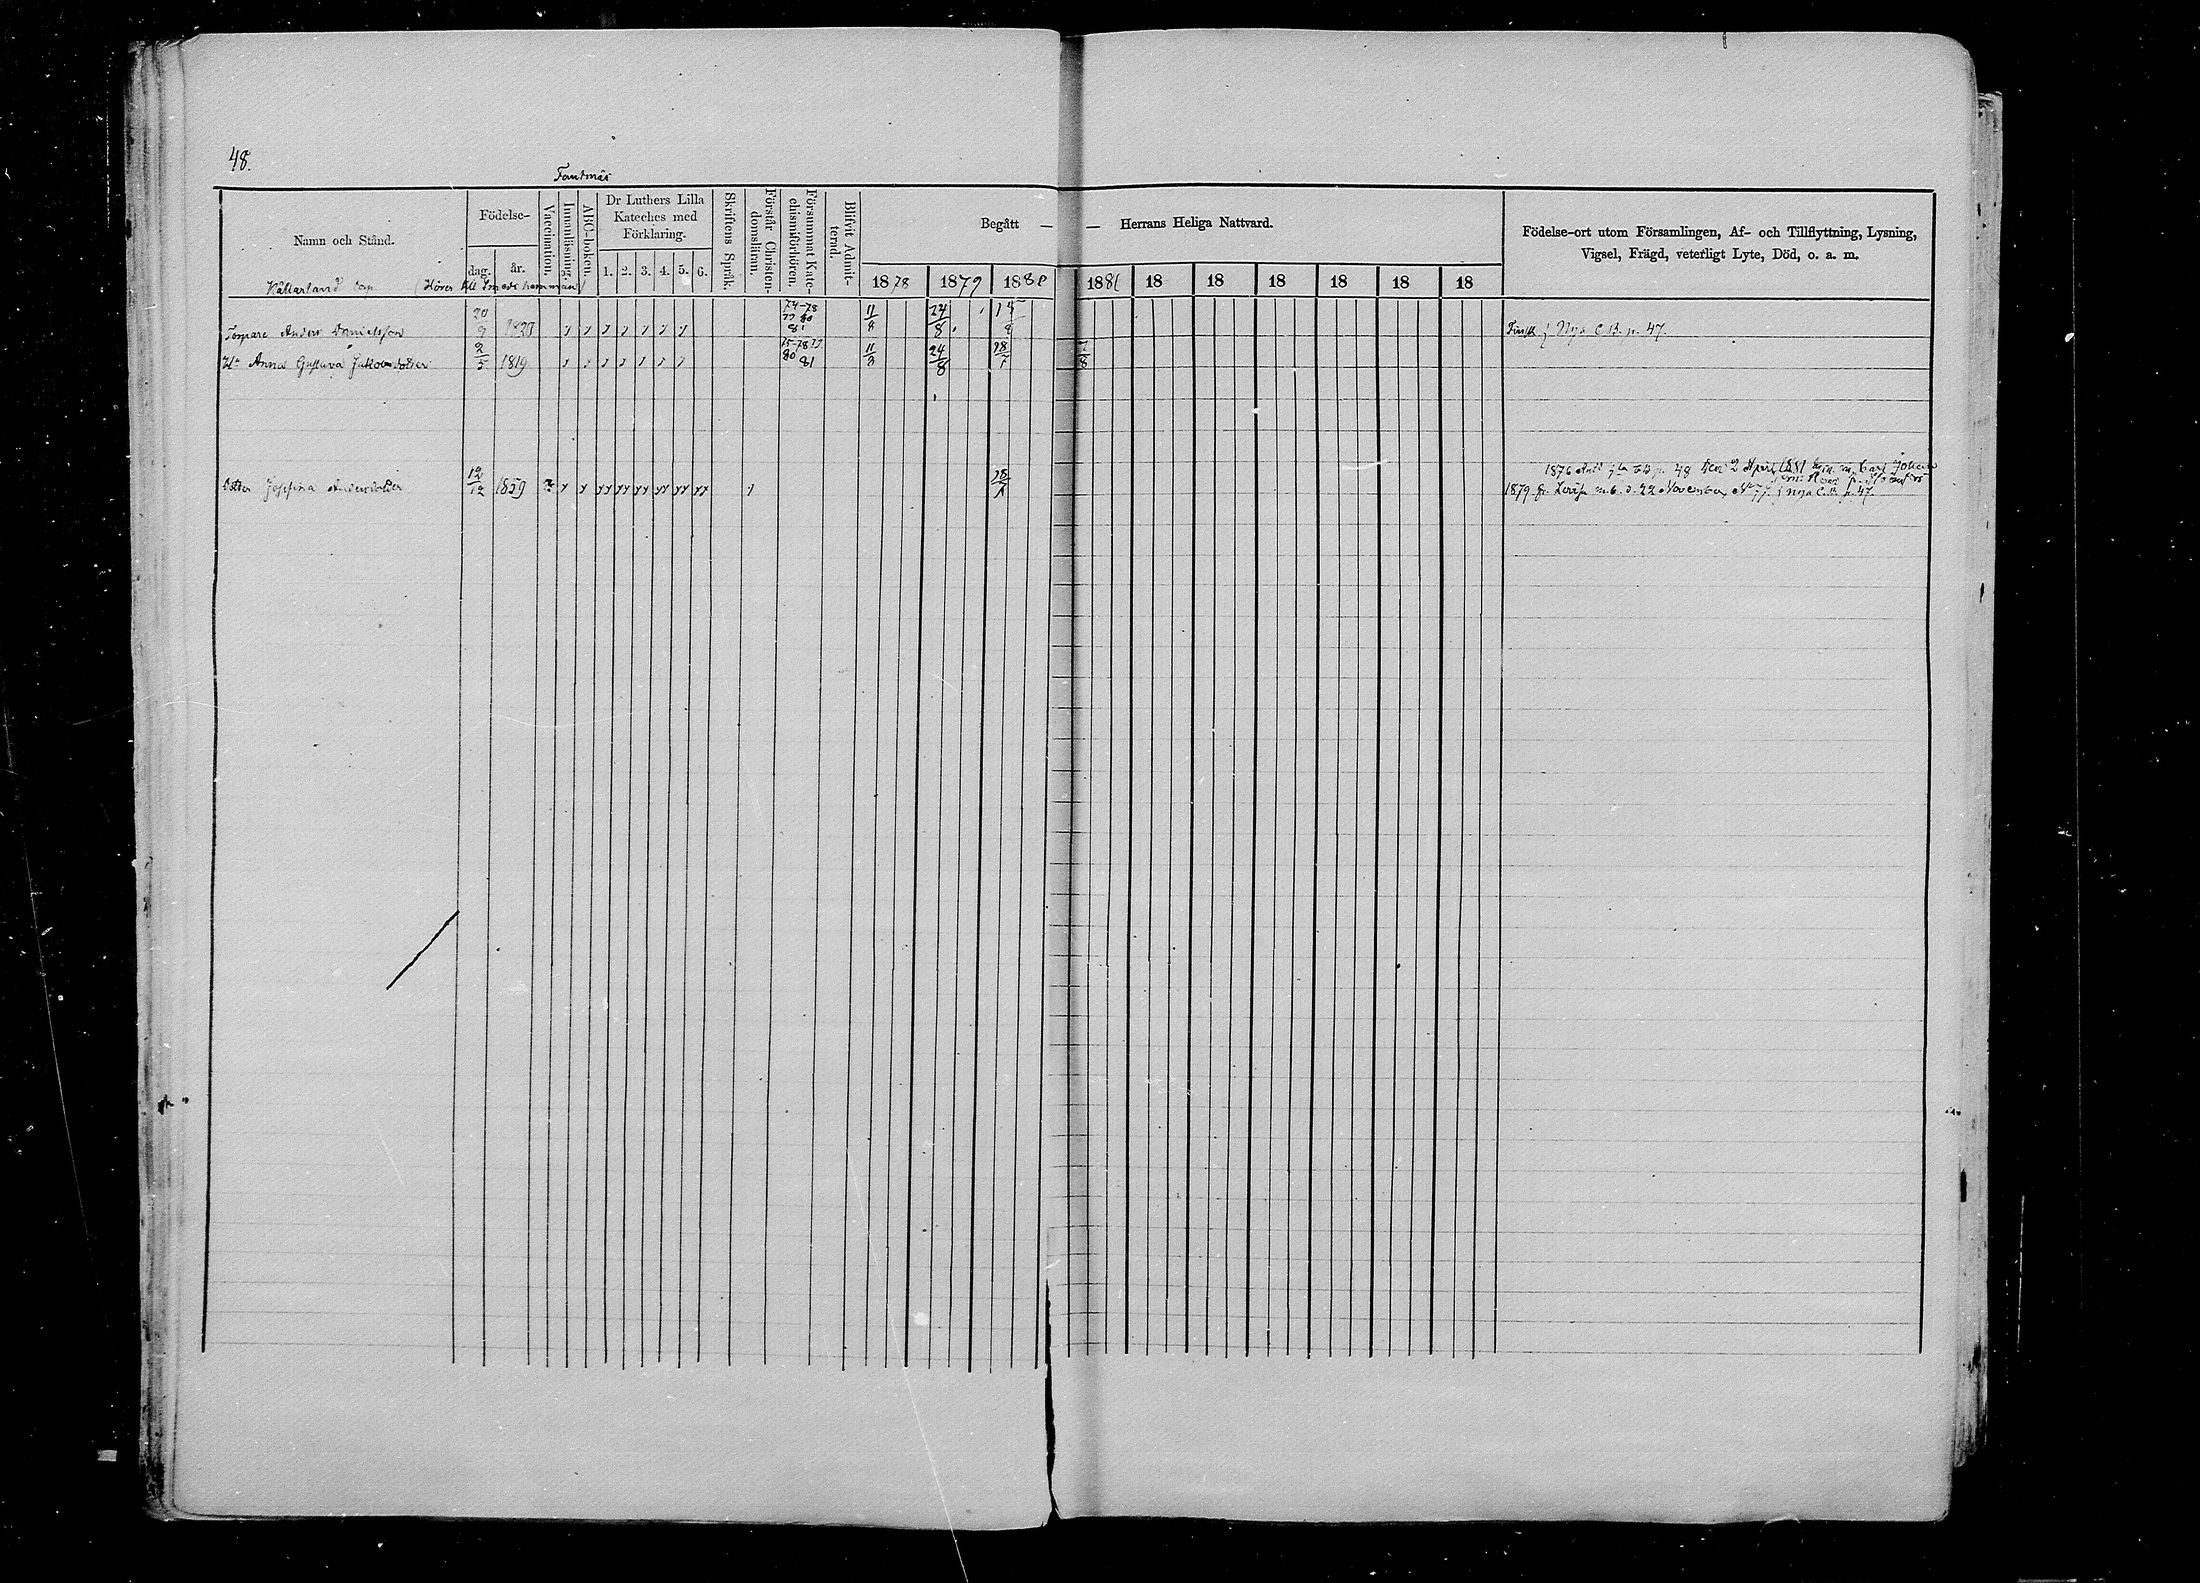 48.
Fantnäs
Namn och Stånd.
Födelse-
dag.
år.
Vaccination.
Innanläsning.
ABC-boken.
Dr Luthers Lilla
Kateches med
Förklaring.
1. 2. 3. 4. 5. 6.
Skriftens Språk.
Förstår Christen-
domsläran.
Försummat Kate-
chismiförhören.
Blifvit Admit-
terad.
Begått — — Herrans Heliga Nattvard.
1878 1879 1880 1881 18 18 18 18 18 18
Födelse-ort utom Församlingen, Af- och Tillflyttning, Lysning,
Vigsel, Frägd, veterligt Lyte, Död, o. a. m.
Källarland (Hörer till Smeds hemman)
Torpare Anders Danielsson 20/9 1820 74-78 77 80 81 11/8 24/8 15/8 Finsk i Nya C.B. p. 47.
H:u Anna Gustava Jakobsdotter 2/5 1819 75-78 77 80 81 11/8 24/8 18/7 7/8
Dotter Josefina Andersdotter 12/12 1859 18/7
1876 p. 48 Den 2 April 1881 m. Carl Johan
1879 fr. Lovisa m. b. d. 22 November N:o 77. i nya C.B. p. 47.